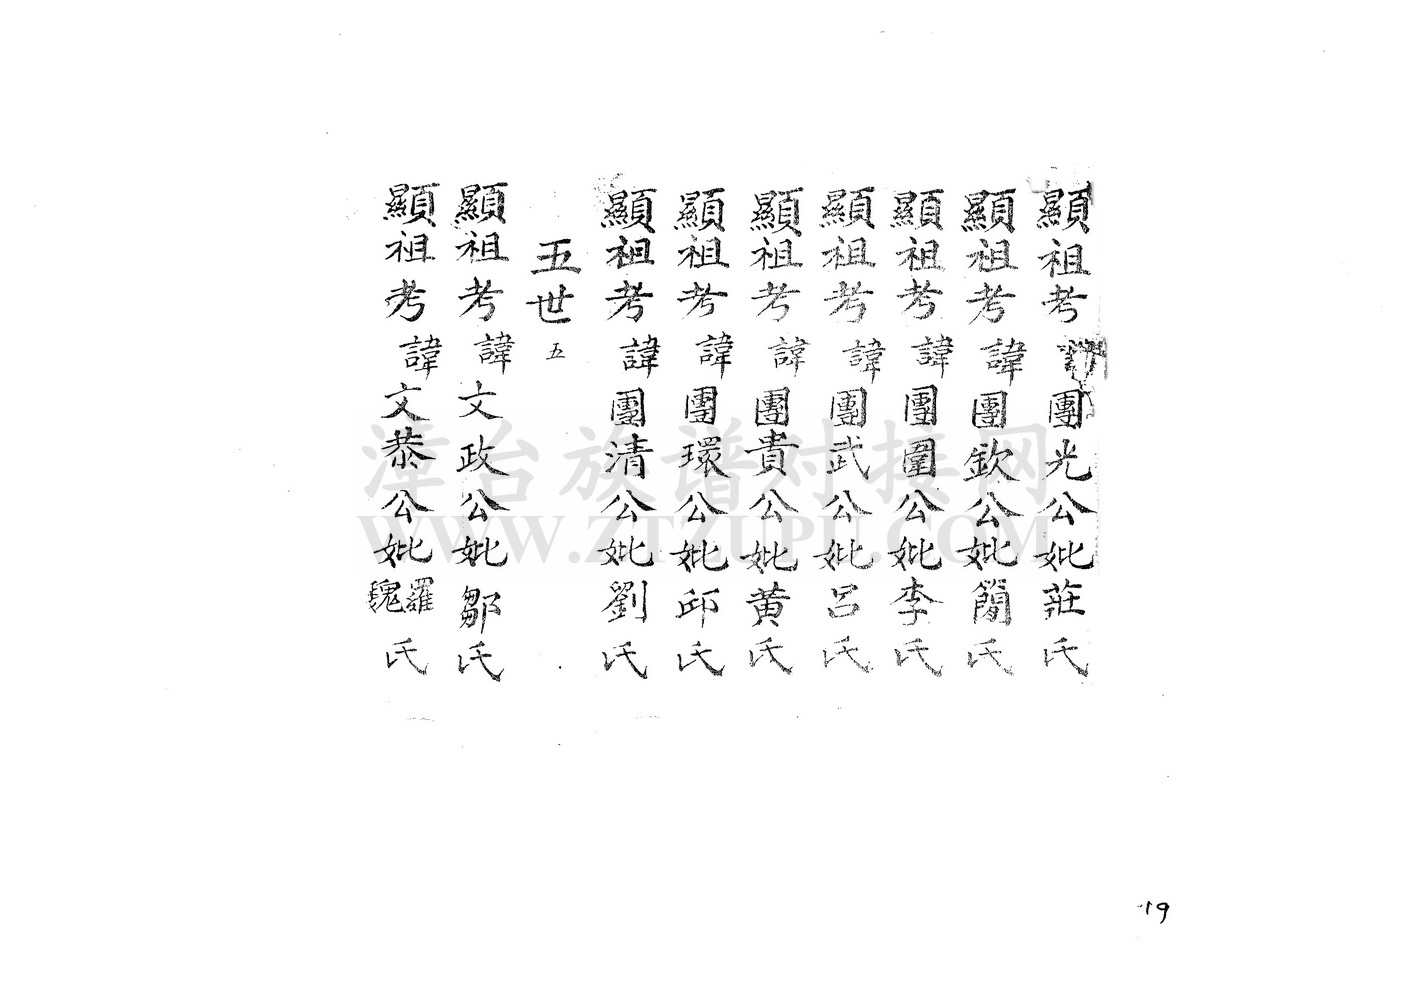 顯祖考諱團光公妣莊氏
顯祖考諱團欽公妣簡氏
顯祖考諱團圍公妣李氏
顯祖考諱團武公妣呂氏
顯祖考諱團貴公妣黄氏
顯祖考諱團環公妣邱氏
顯祖考諱團清公妣劉氏
五世 五
顯祖考諱文政公妣鄒氏
顯祖考諱文恭公妣羅魏氏
漳台族谱对接网
WWW.ZTZUPU.COM
19